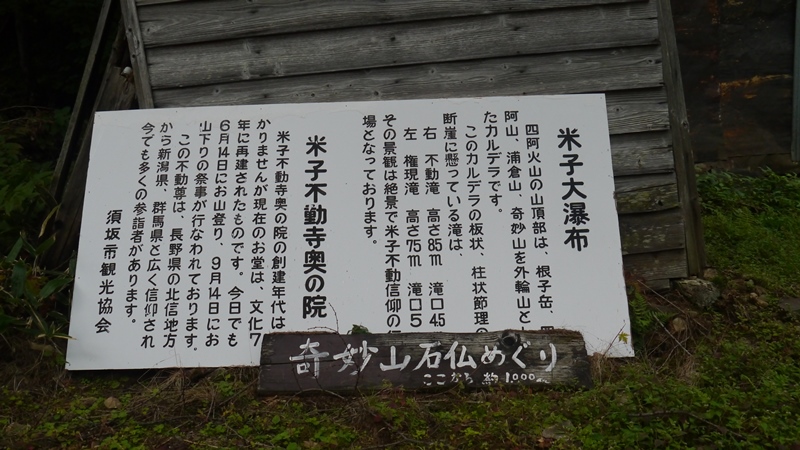 米子大瀑布
四阿火山の山頂部は、根子岳、四
阿山、浦倉山、奇妙山を外輪山とし
たカルデラです。
このカルデラの板状、柱状節理の
断崖に懸っている滝は、
右 不動滝 高さ85m 滝口45
左 権現滝 高さ75m 滝口5
その景観は絶景で米子不動信仰の
場となっております。
米子不動寺奥の院
米子不動寺奥の院の創建年代は
かりませんが現在のお堂は、文化7
年に再建されたものです。今日でも
6月14日にお山登り、9月14日にお
山下りの祭事が行なわれております。
この不動尊は、長野県の北信地方
から新潟県、群馬県と広く信仰され
今でも多くの参詣者があります。
須坂市観光協会
奇妙山石仏めぐり
ここから 約1.000m